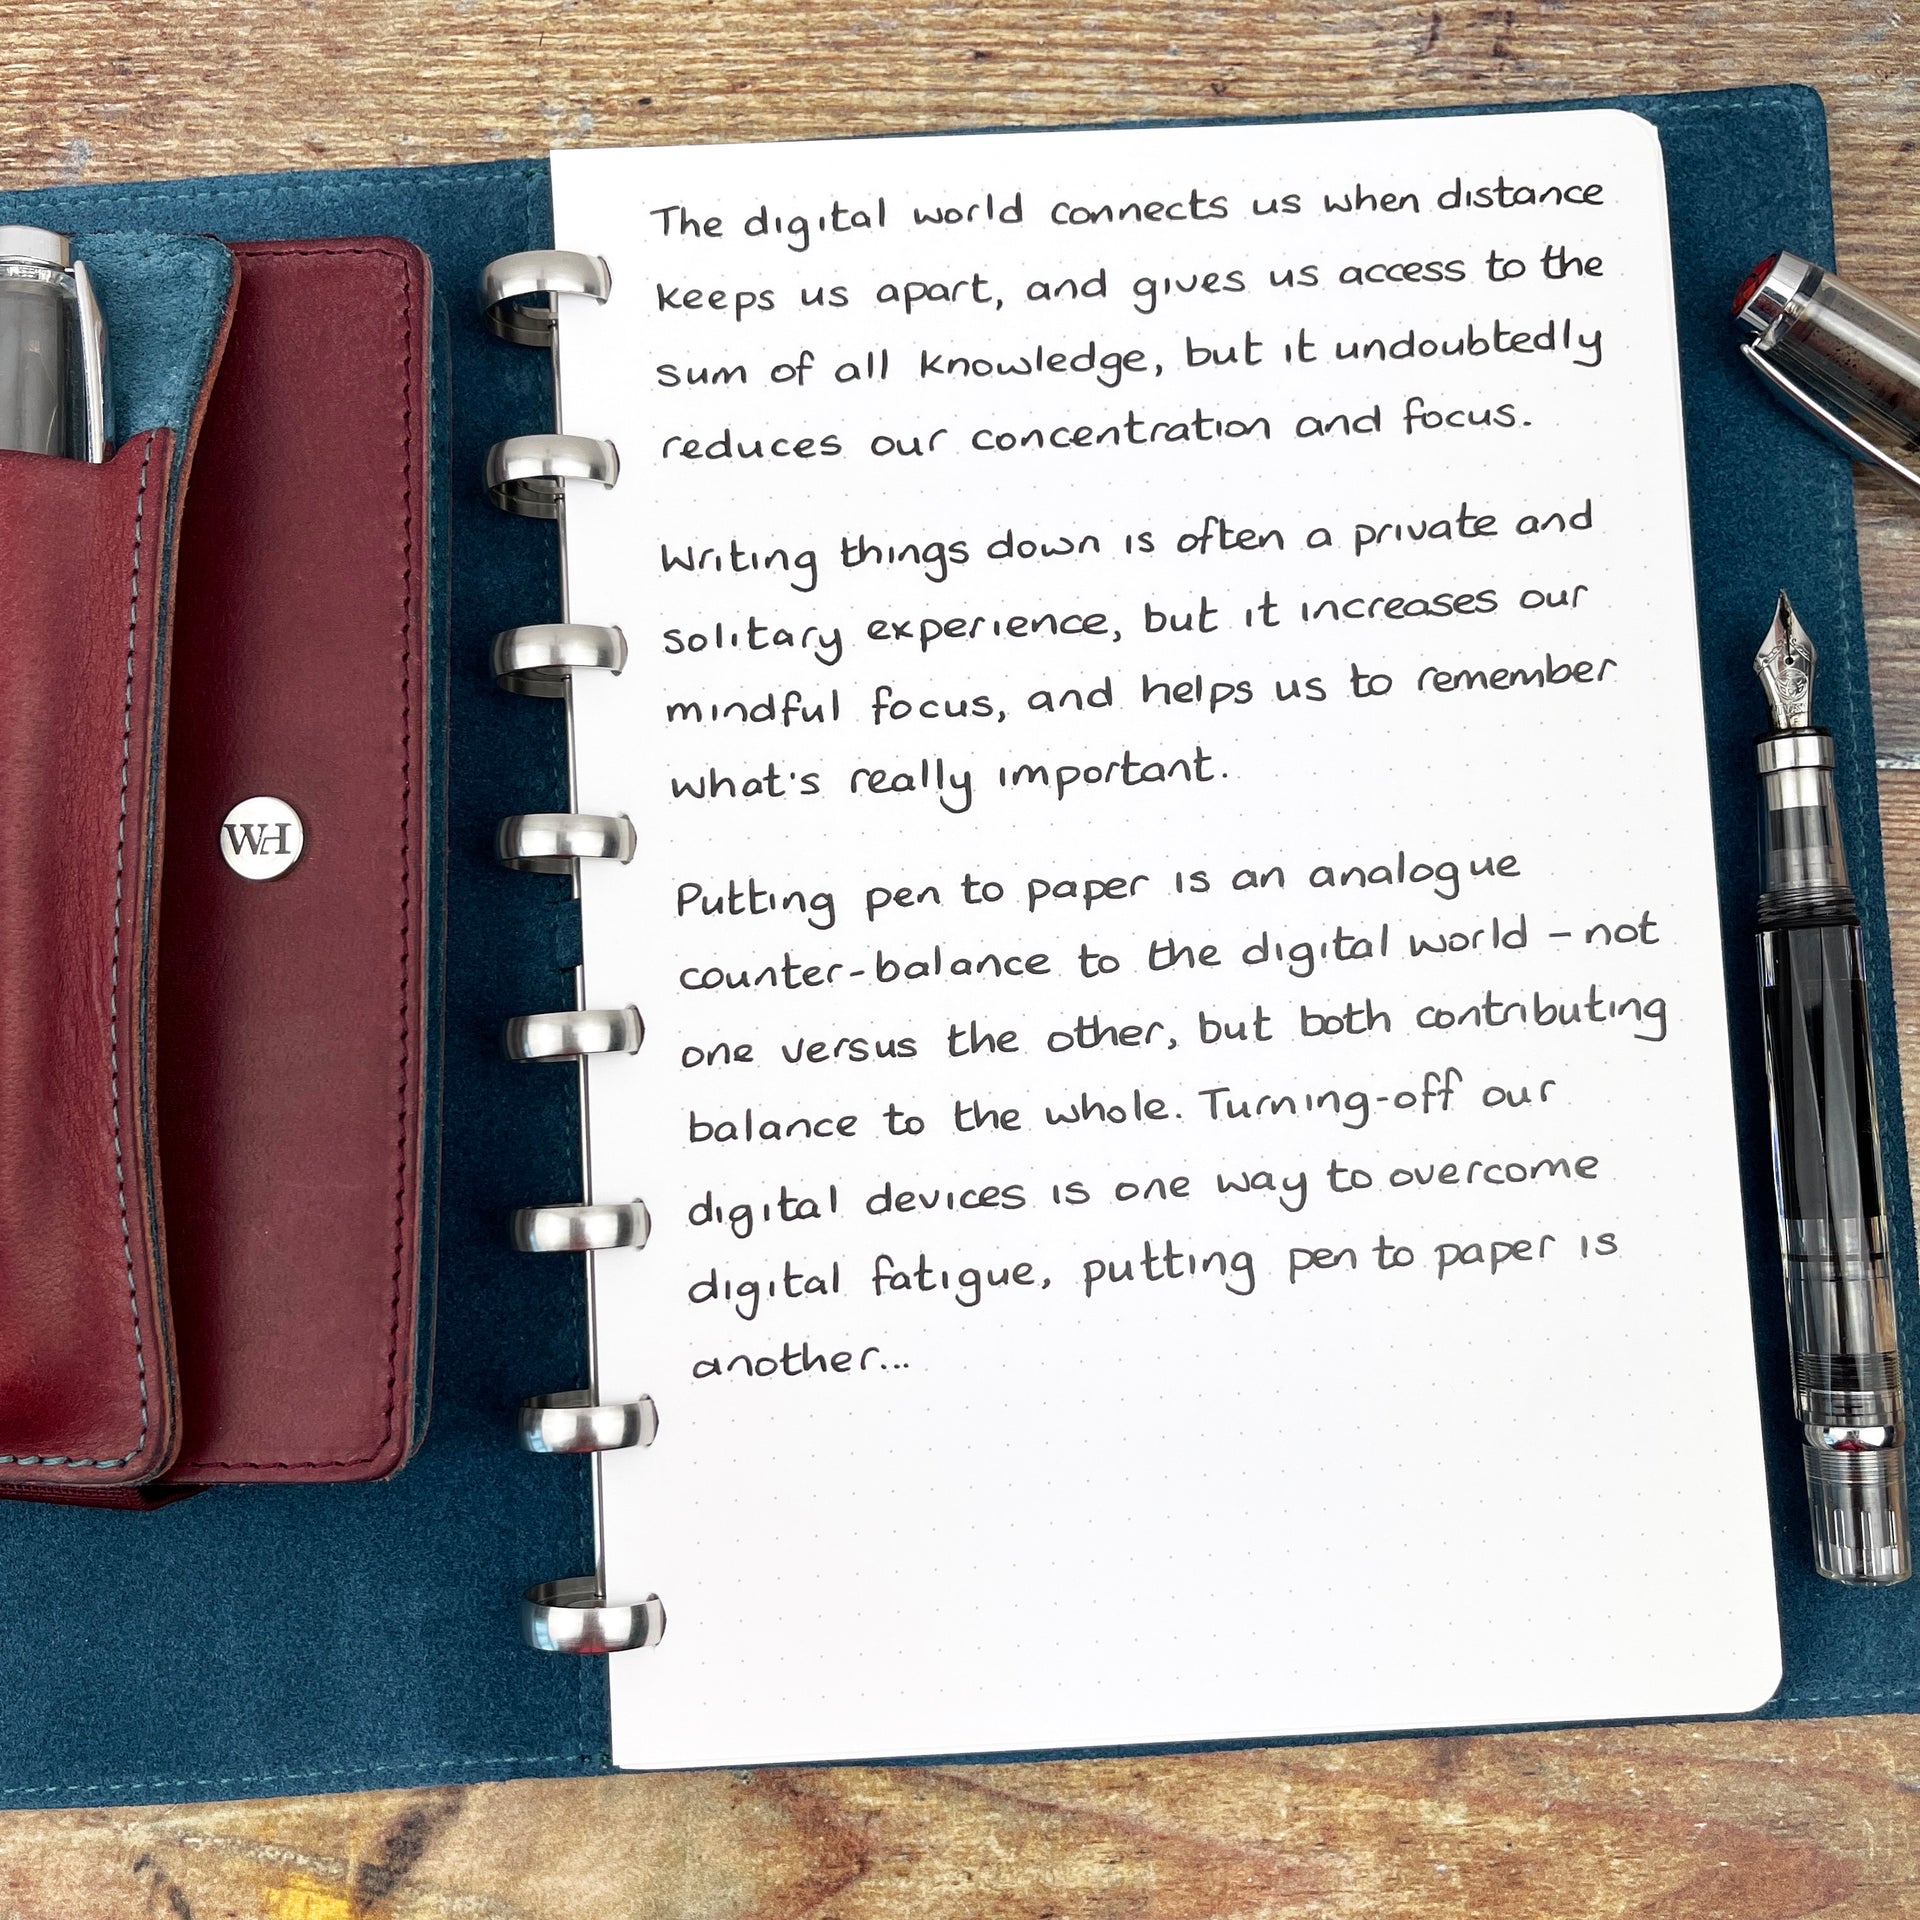 The digital world connects us when distance
keeps us apart, and gives us access to the
sum of all knowledge, but it undoubtedly
reduces our concentration and focus.
Writing things down is often a private and
solitary experience, but it increases our
mindful focus, and helps us to remember
what's really important.
Putting pen to paper is an analogue
counter-balance to the digital world - not
one versus the other, but both contributing
balance to the whole. Turning-off our
digital devices is one way to overcome
digital fatigue, putting pen to paper is
another...
WH